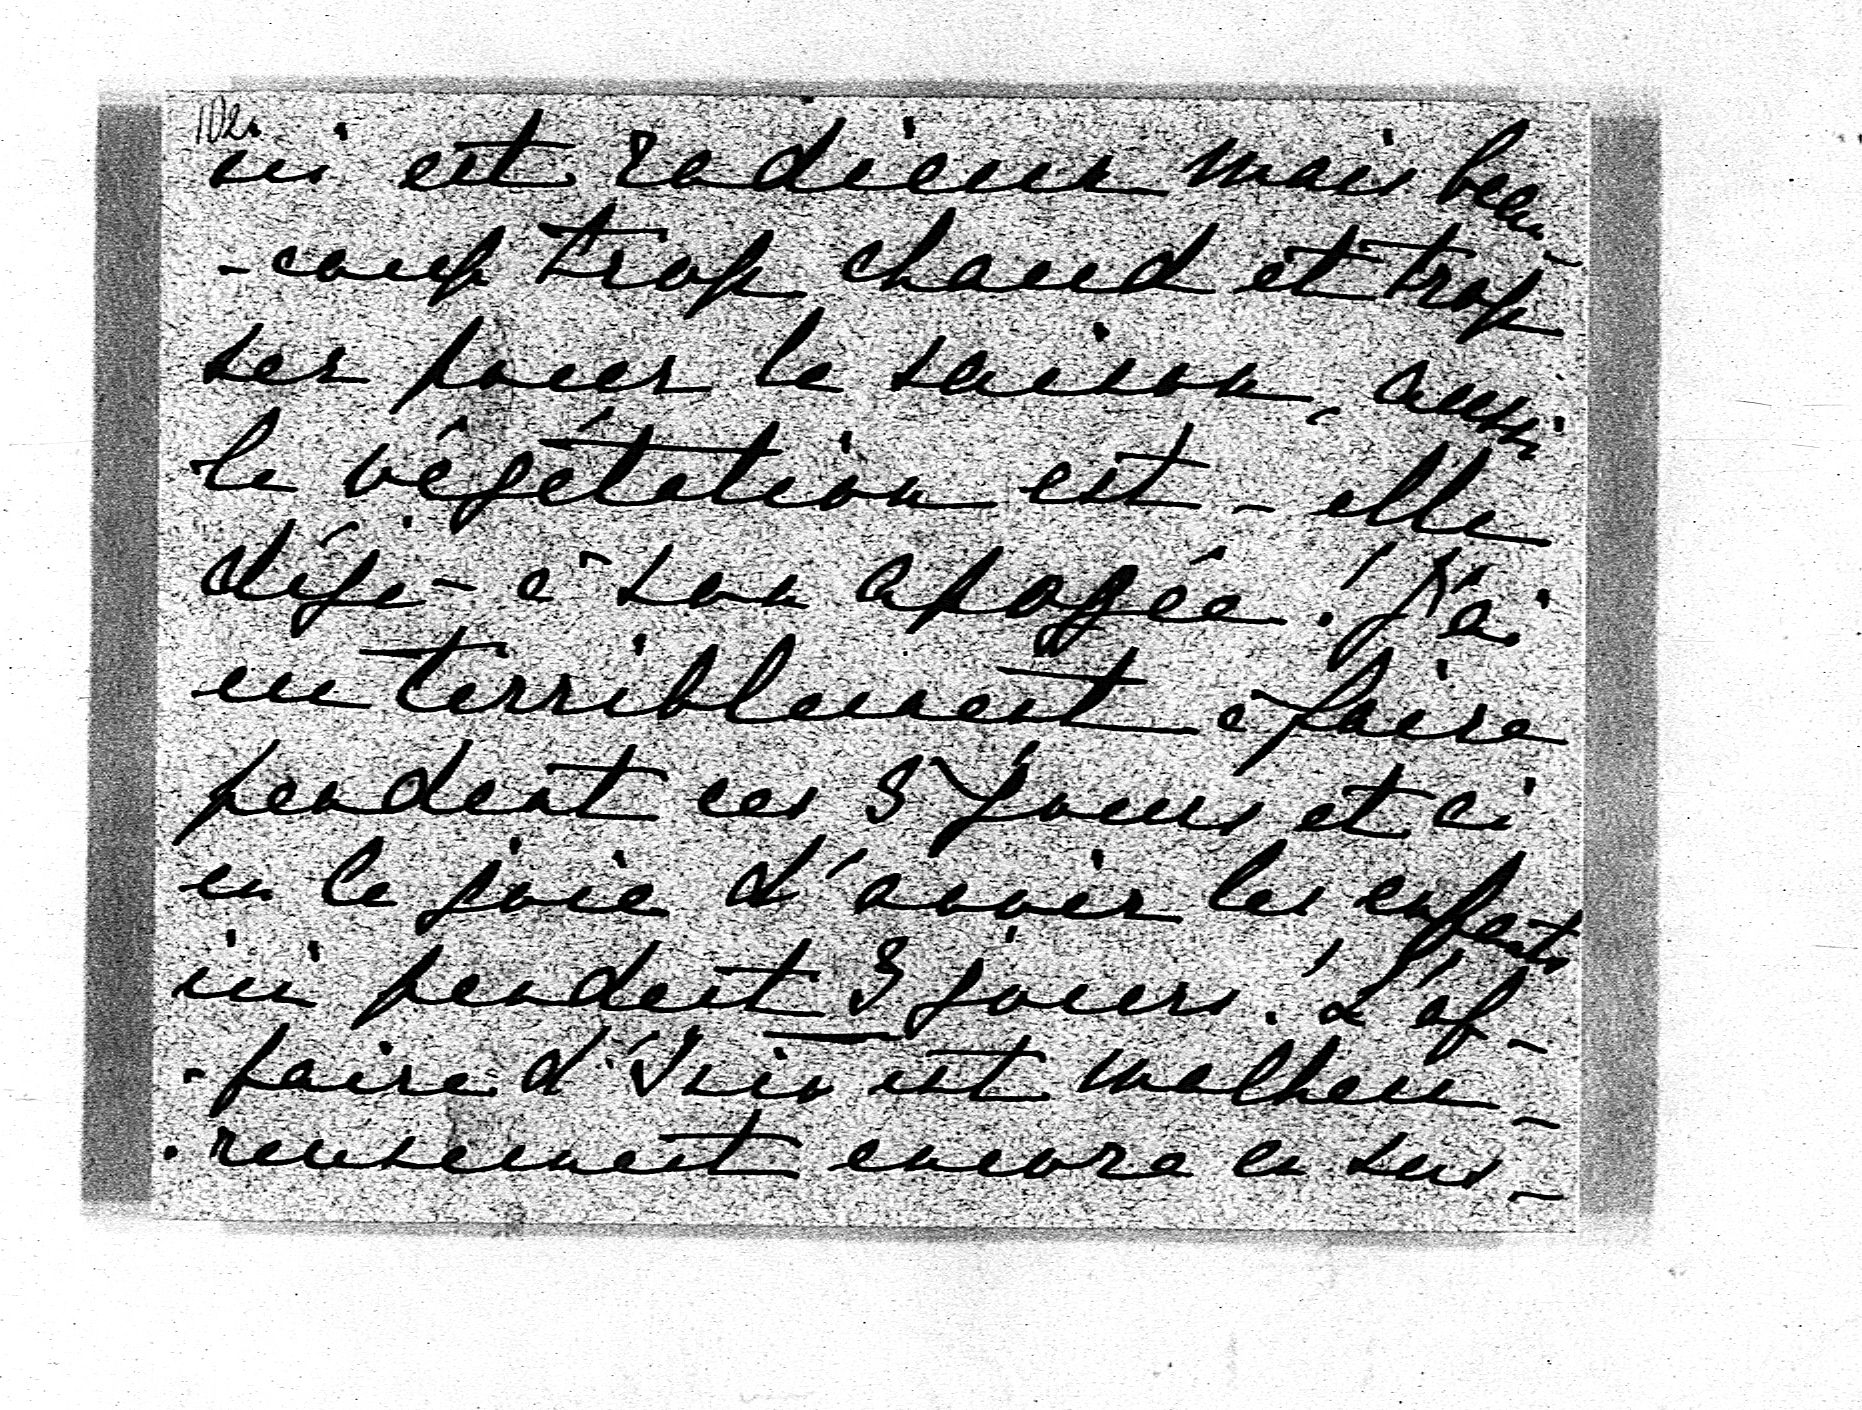 102.
ici est radieux mais beau-
-coup trop chaud et trop
sec pour la saison, aussi
la végétation est-elle
déjà à son apogée! J'ai
eu terriblement à faire
pendant ces 3 jours et ai
eu la joie d'avoir les enfants
ici pendant 3 jours! L'af-
-faire d' est malheu-
-reusement encore en sus-